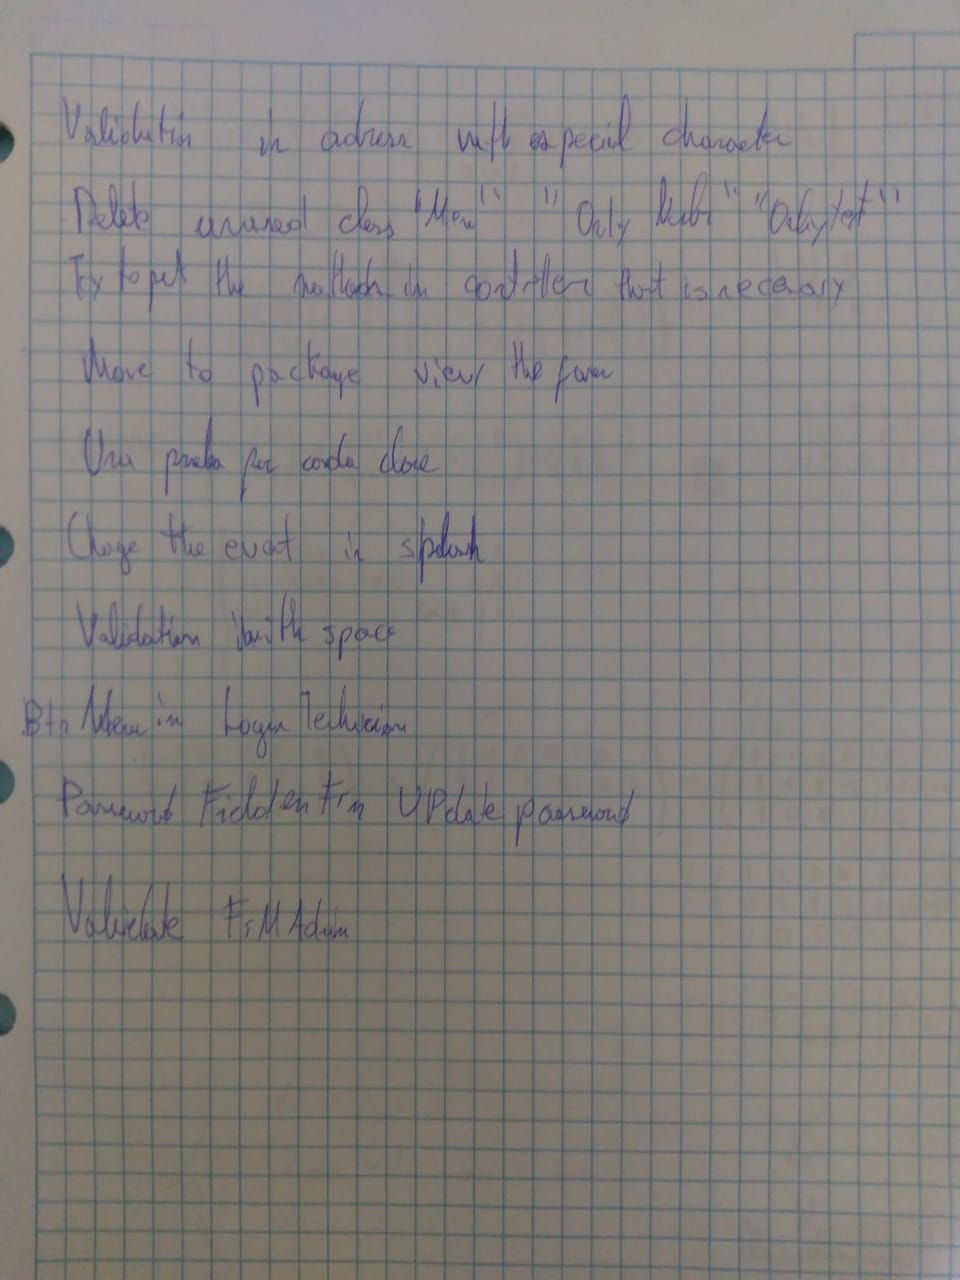 Validation in adress with especial character
Delete unused class "Menu" "Only Numb" "Only text"
Try to put the methods in controller that is necesary
Move to package view the form
Una prueba por cada clase
Change the event in splash
Validation with space
Btn Menu in Login Technician
Password Field en Frm UPdate password
Validate FrM Admin